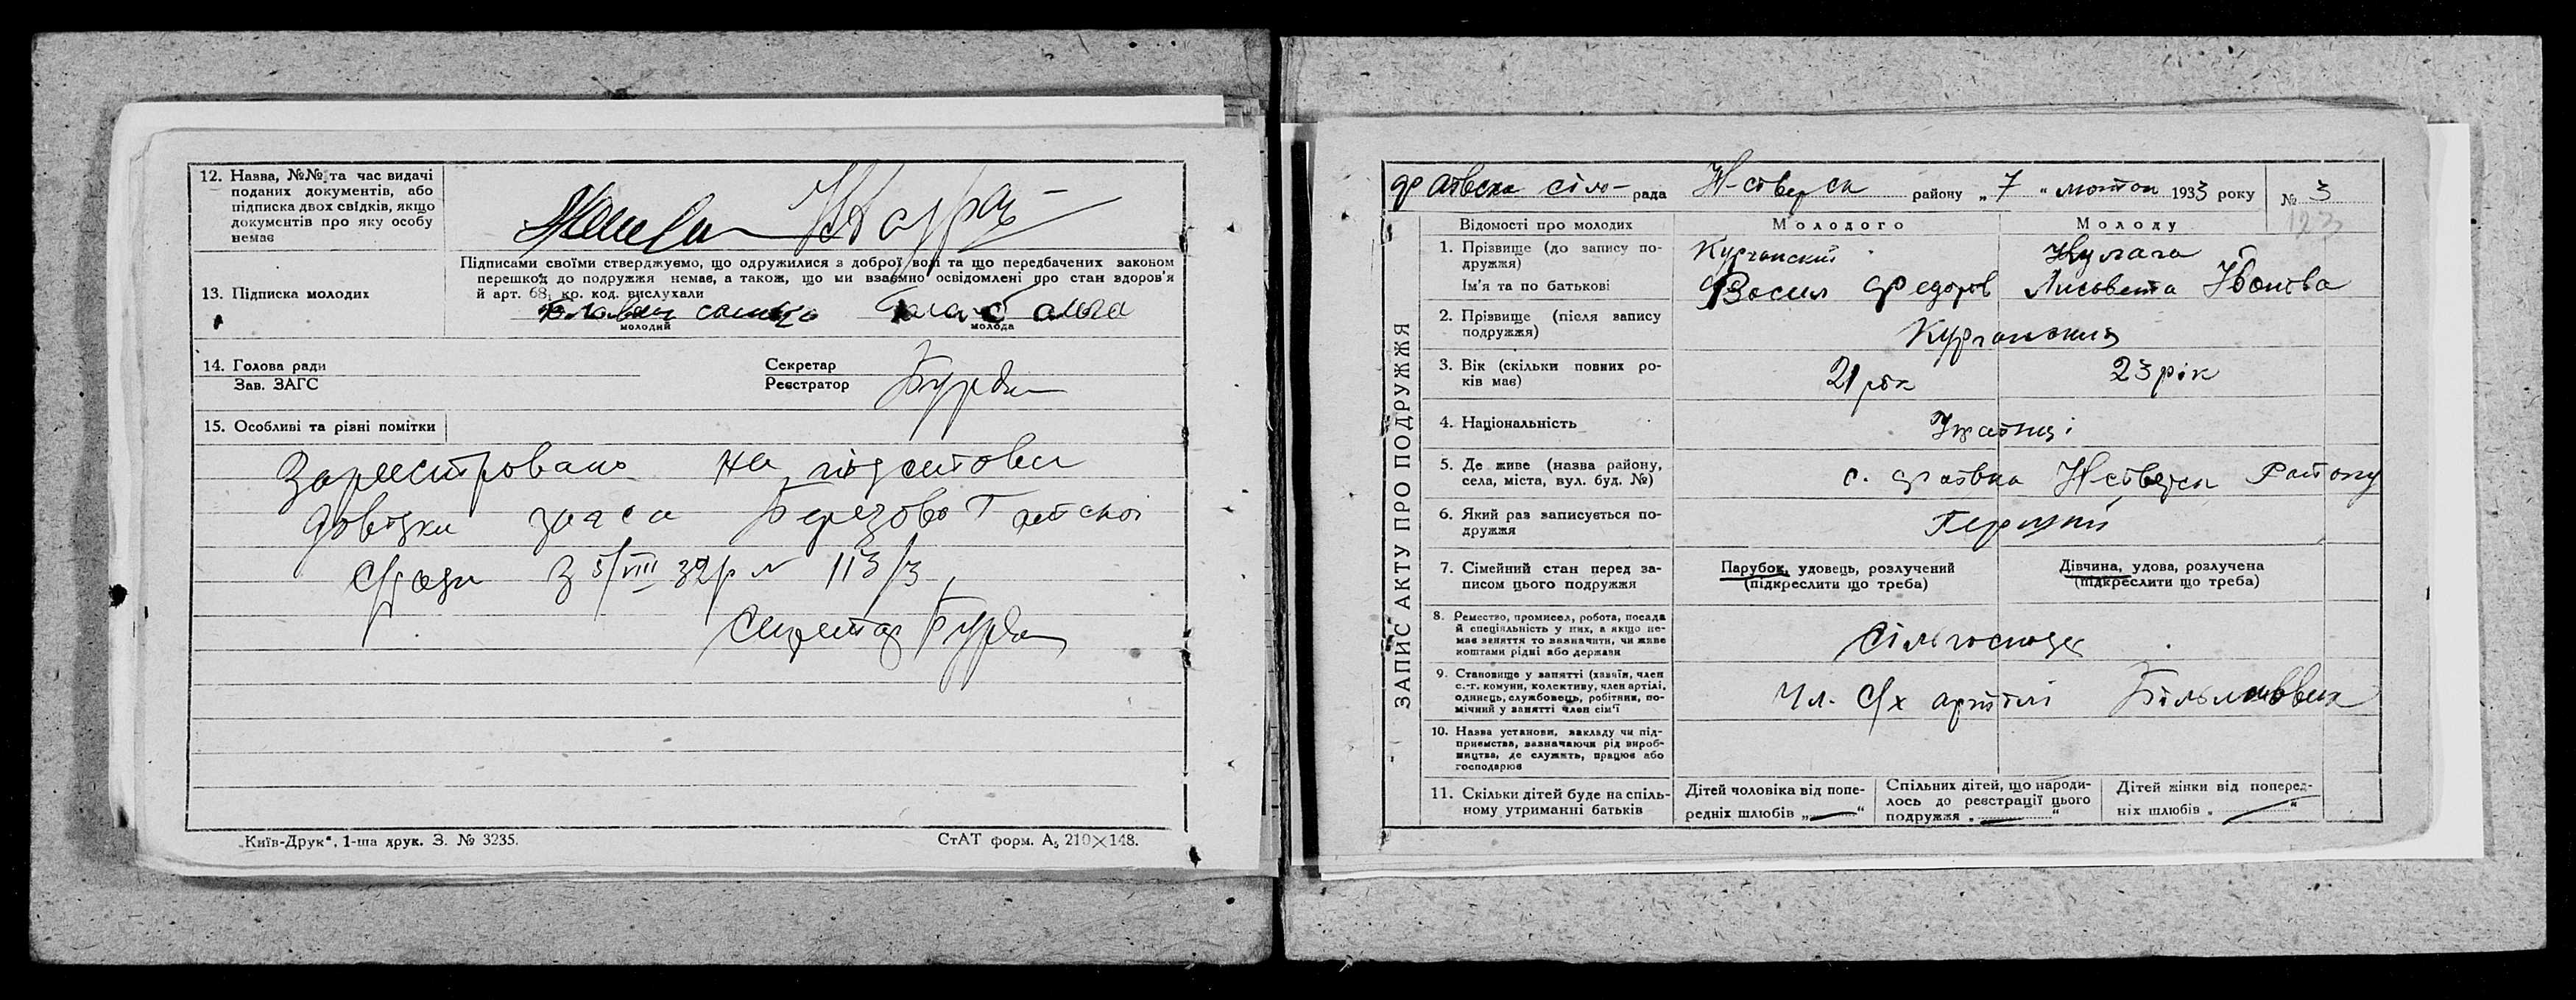 12. Назва, №№ та час видачі
поданих документів, або
підписка двох свідків, якщо
документів про яку особу
немає
13. Підписка молодих
Підписами своїми стверджуємо, що одружилися з доброї волі та що передбачених законом
перешкод до подружжя немає, а також, що ми взаємно освідомлені про стан здоров'я
й арт. 68₁ кр. код. вислухали
молодий молода
14. Голова ради Секретар
Зав. ЗАГС Реєстратор
15. Особливі та різні помітки
Зареєстровано на підставі
довідки загса Березово Гатської
с/ради З 5/VIII 32 р № 113/3
секретар
„Київ-Друк“, 1-ша друк. З. № 3235. СтАТ форм. А₅ 210×148.
ЗАПИС АКТУ ПРО ПОДРУЖЖЯ
сіль- рада Н-Сіверськ району „7“ лютого 1933 року № 3
193
Відомості про молодих Молодого Молоду
1. Прізвище (до запису по-
дружжя) Курганский Кулага
Ім'я та по батькові Васил Федоров Лисавета Іванова
2. Прізвище (після запису
подружжя) Курганския
3. Вік (скільки повних ро-
ків має) 21 рік 23 рік
4. Національність
5. Де живе (назва району,
села, міста, вул. буд. №) с. Н Сіверськ Району
6. Який раз записується по-
дружжя Перший
7. Сімейний стан перед за-
писом цього подружжя
Парубок, удовець, розлучений
(підкреслити що треба)
Дівчина, удова, розлучена
(підкреслити що треба)
8. Ремество, промисел, робота, посада
й спеціяльність у них, а якщо не-
має заняття то зазначити, чи живе
коштами рідні або держави
9. Становище у занятті (хазяїн, член
с.-г. комуни, колективу, член артілі,
одинець, службовець, робітник, по-
мічний у занятті член сім'ї
Чл. С/х артілі Більшовик
10. Назва установи, закладу чи під-
приємства, зазначаючи рід вироб-
ництва, де служить, працює або
господарює
11. Скільки дітей буде на спіль-
ному утриманні батьків
Дітей чоловіка від попе-
редніх шлюбів „—“
Спільних дітей, що народи-
лось до реєстрації цього
подружжя „—“
Дітей жінки від поперед-
ніх шлюбів „—“